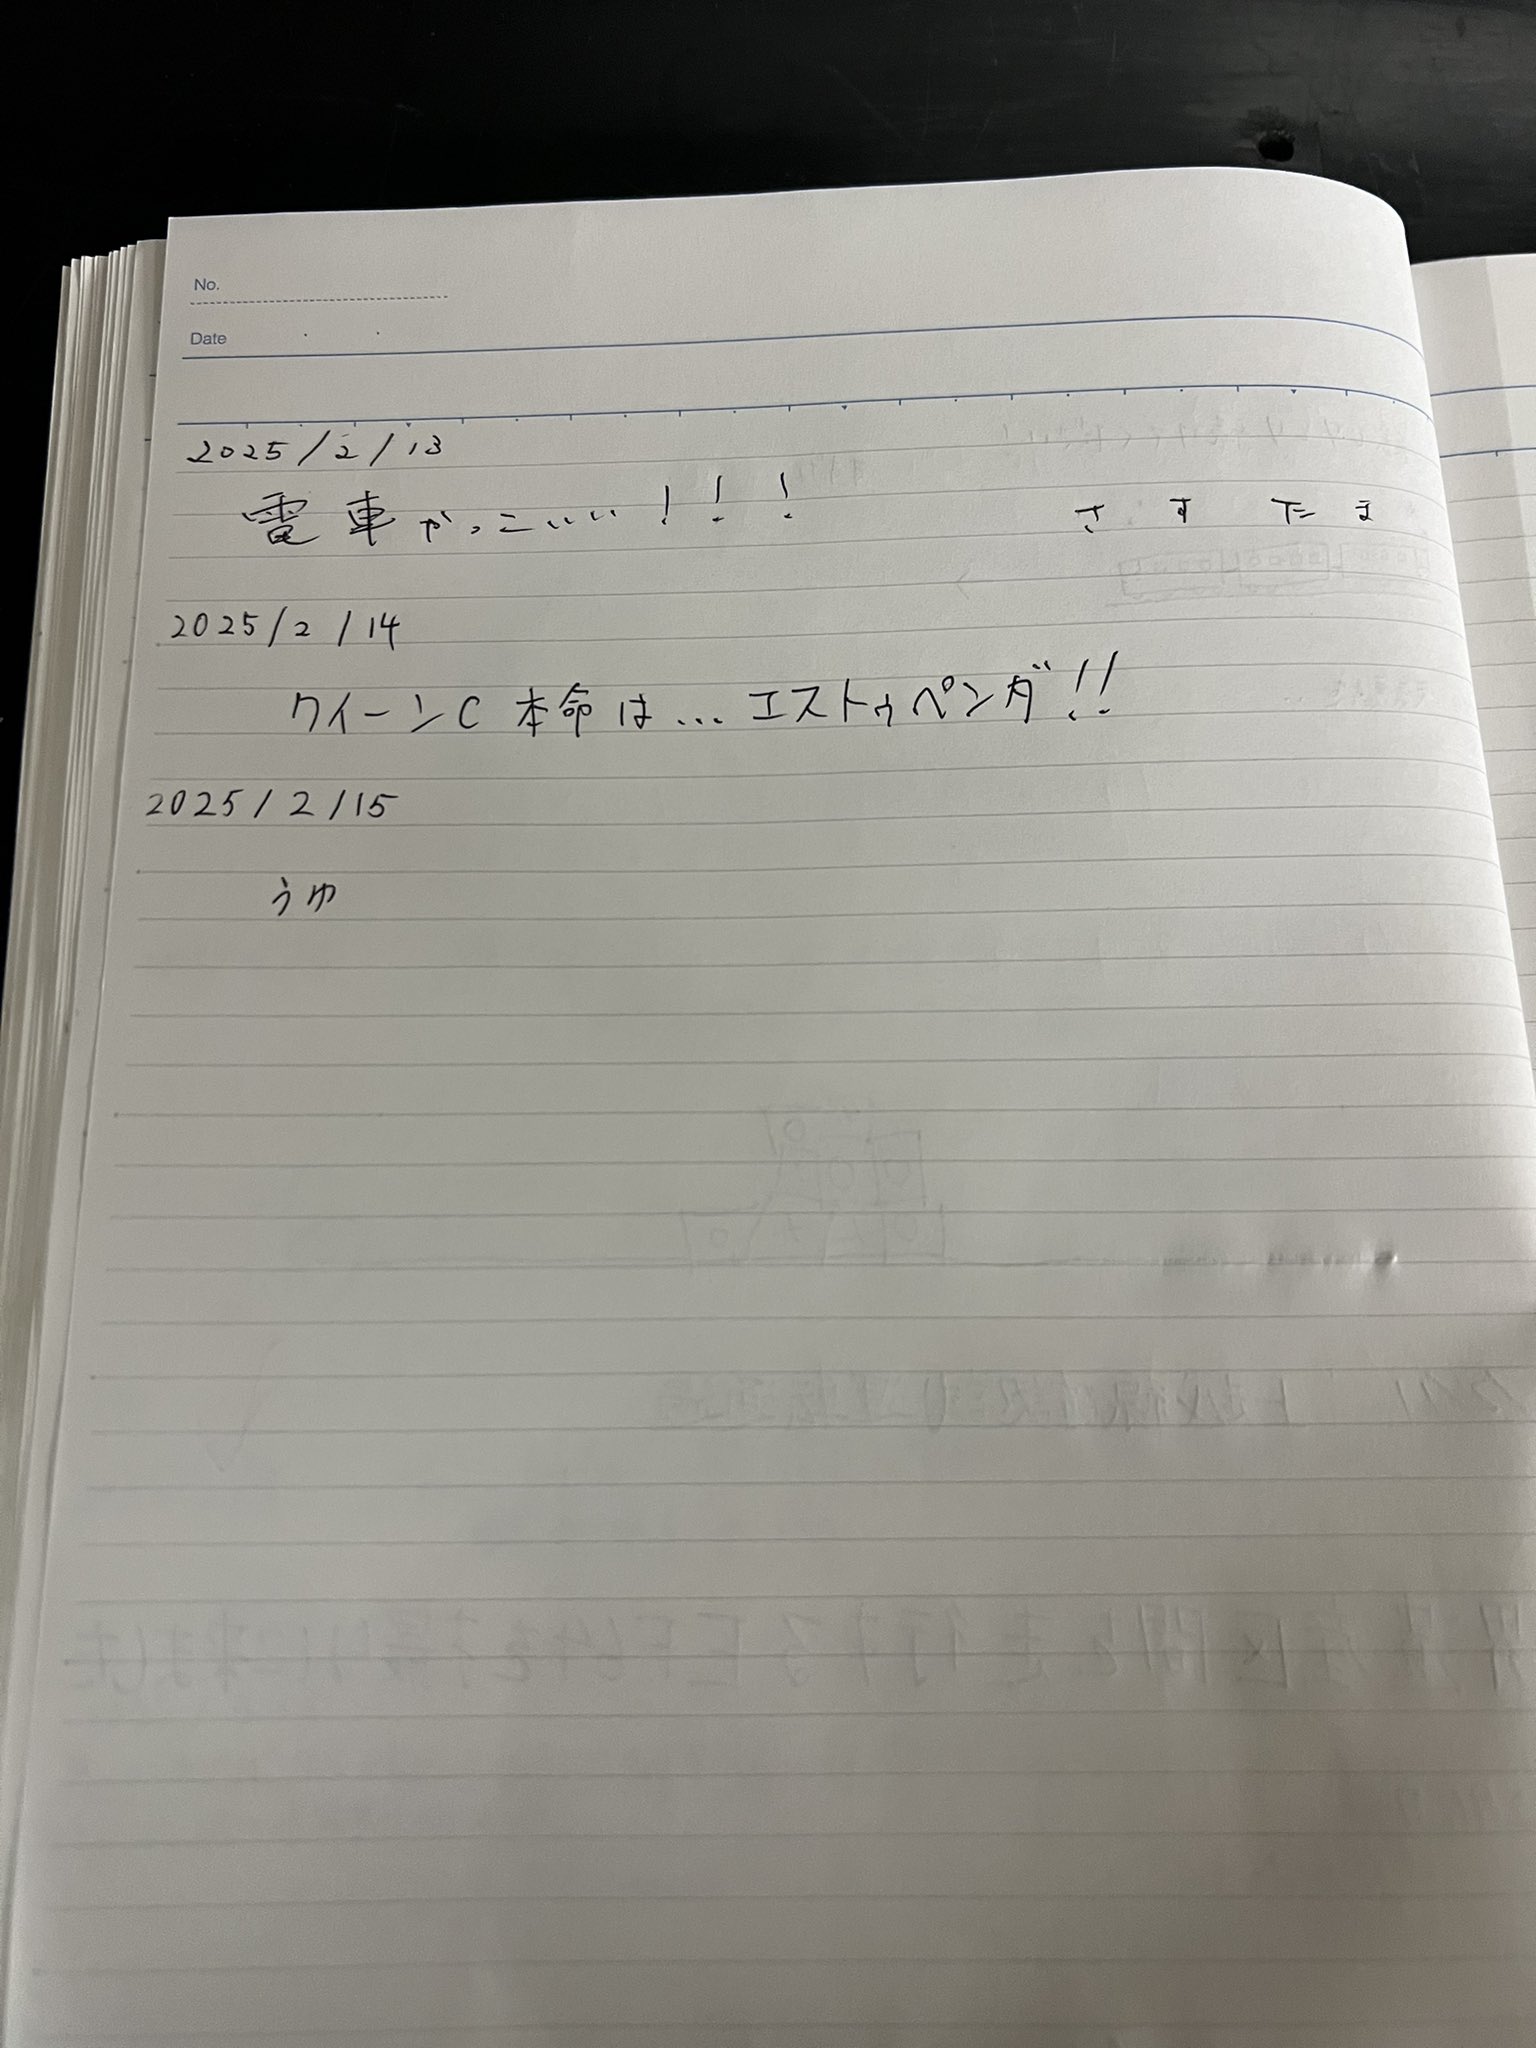 No.
Date
2025/2/13
電車かっこいい!!! さすたま
2025/2/14
クイーンC 本命は...エストゥペンダ!!
2025/2/15
うゆ